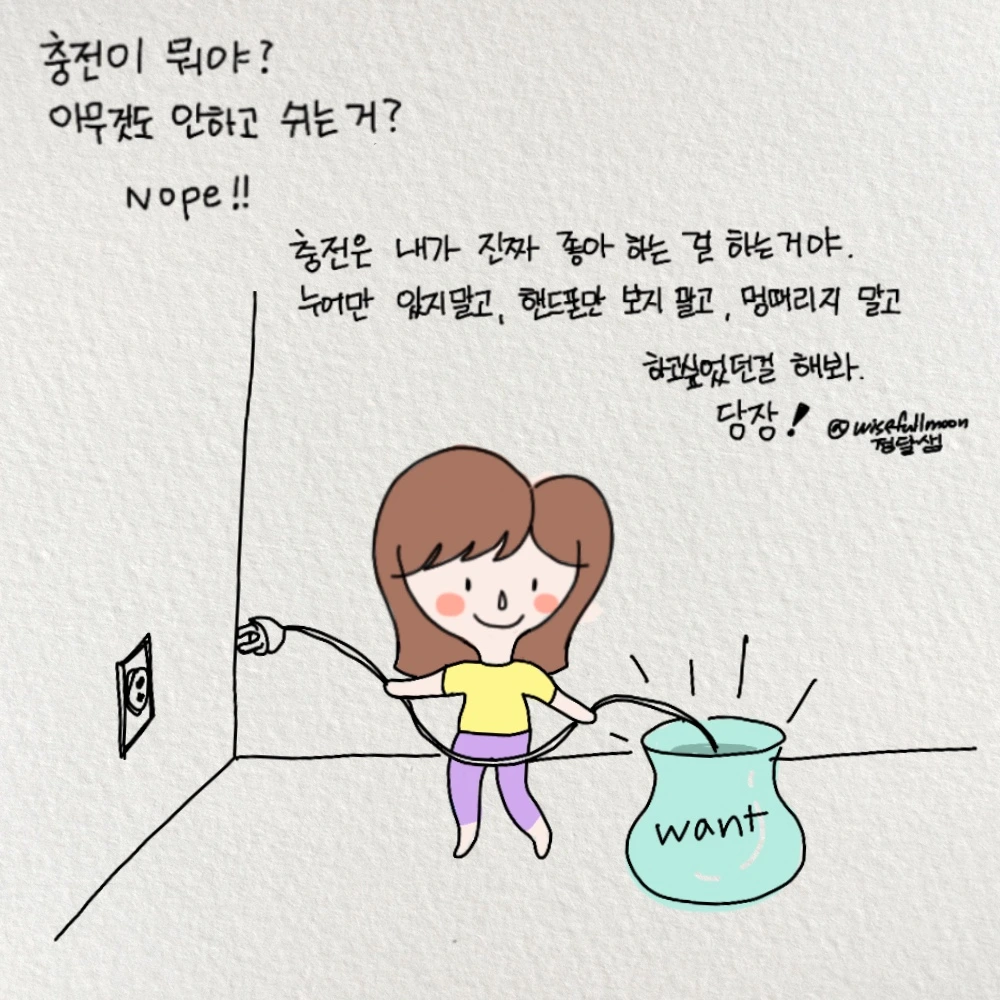 충전이 뭐야?
아무것도 안하고 쉬는 거?
Nope!!
충전은 내가 진짜 좋아 하는 걸 하는거야.
누어만 있지말고, 핸드폰만 보지 말고, 멍때리지 말고
하고싶었던걸 해봐.
당장!
@wisefullmoon
정달샘
want